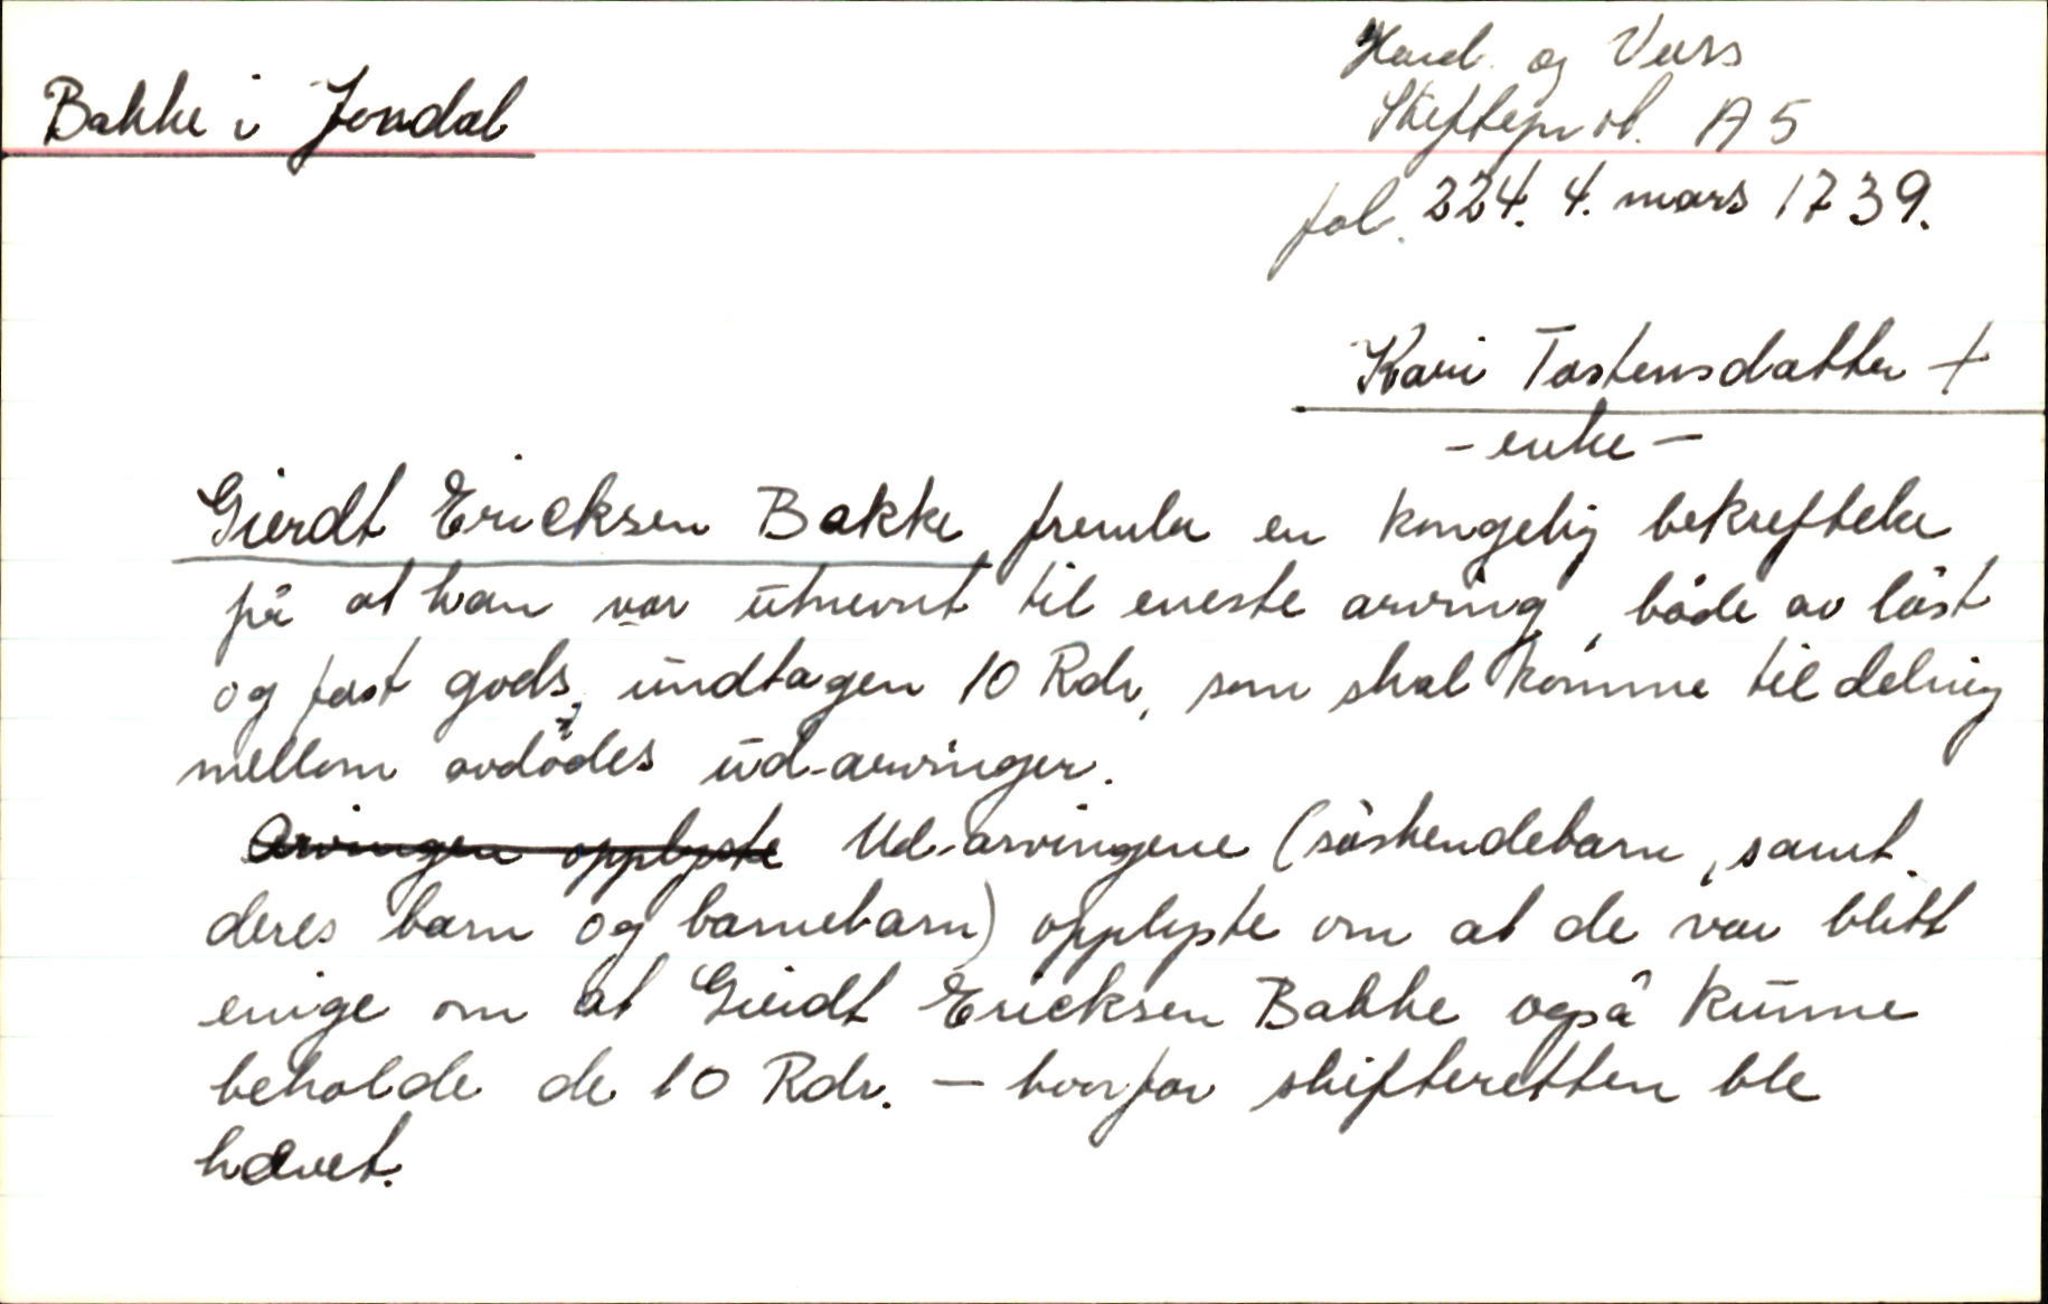 Bakke i Jondal
Hard. og Voss
Skifteprot. A 5
fol. 224. 4. mars 1739.
Kari Tostensdatter +
- enke -
Gierdt Ericksen Bakke fremla en kongelig bekreftelse
på at han var utnevnt til eneste arving, både av löst
og fast gods, undtagen 10 Rdr, som skal komme til deling
mellom avdödes ud-arvinger.
Arvingen opplyste Ud-arvingene (söskendebarn, samt
deres barn og barnebarn) opplyste om at de var blitt
enige om at Gierdt Ericksen Bakke også kunne
beholde de 10 Rdr. - hvorfor skifteretten ble
hævet.